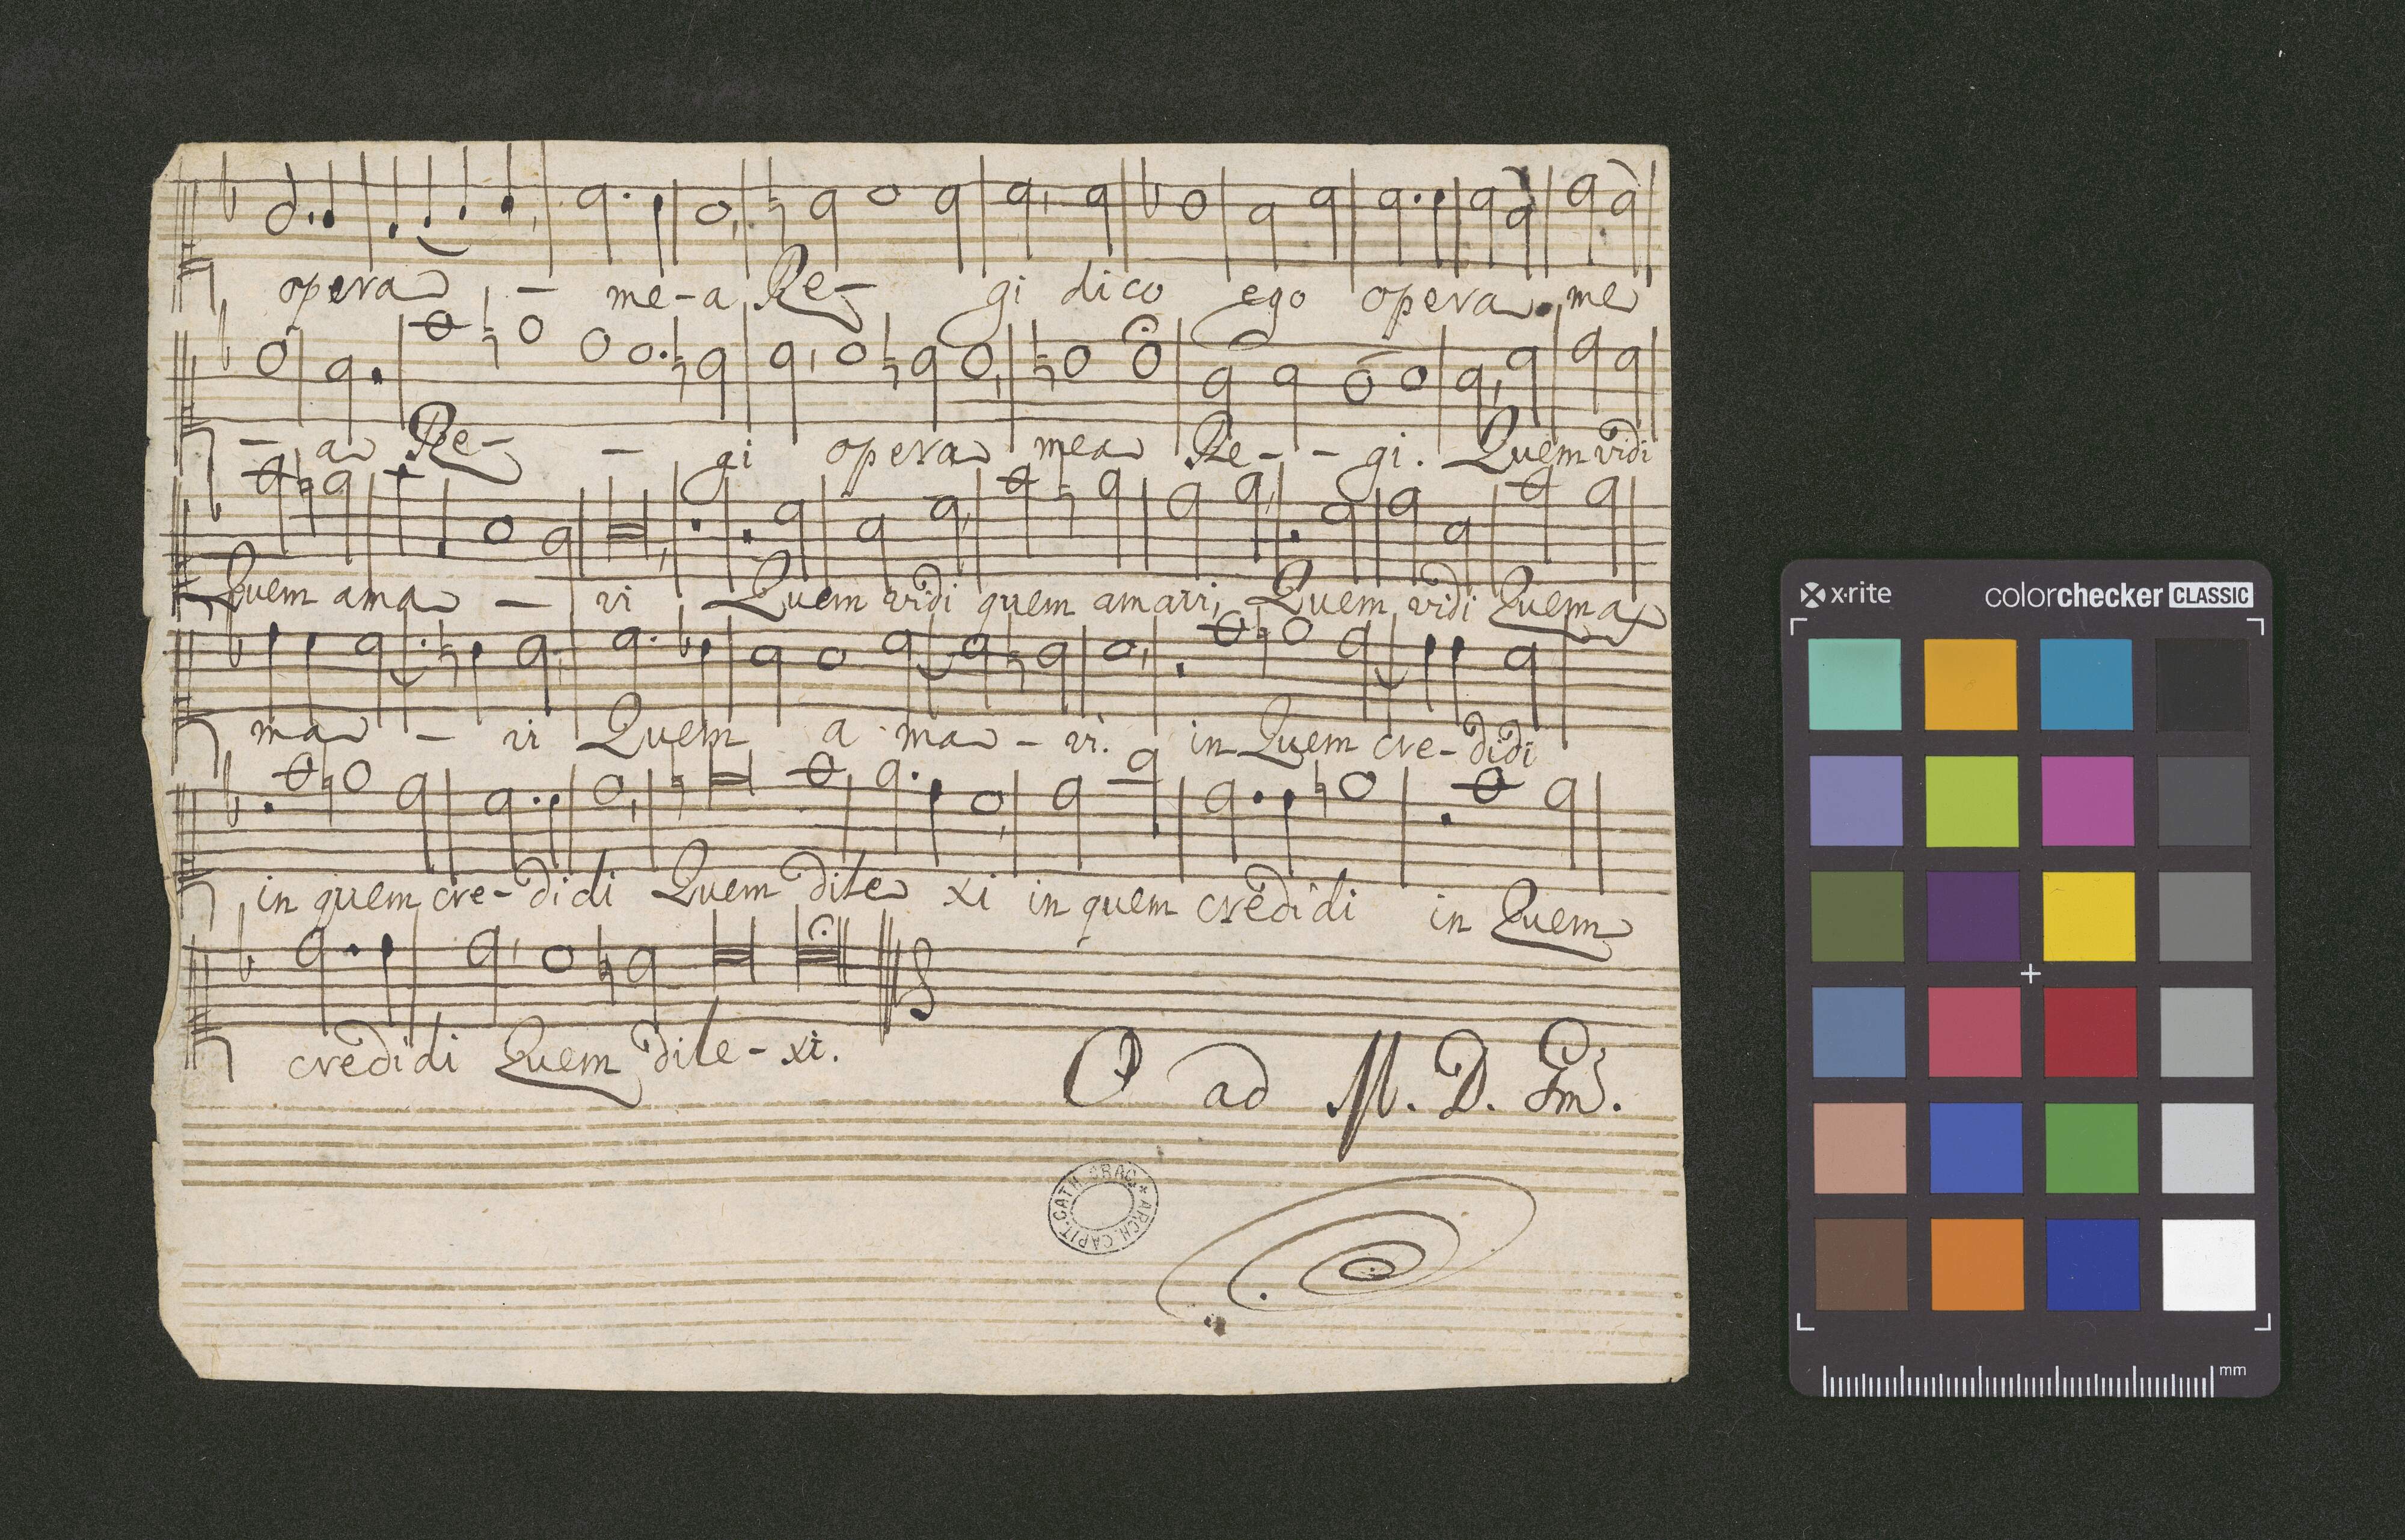 opera - me-a Re- gi dico ego opera me
- a Re- - gi opera mea Re- - gi. Quem vidi
Quem ama - vi Quem vidi quem amavi, Quem vidi Quem a
ma - vi Quem a ma - vi. in Quem cre-didi
in quem cre-didi Quem dile xi in quem credidi in Quem
credidi Quem dile-xi.
O ad M. D. Gm̃.
ARCH. CAPIT. CATH. GRAC. *
x·rite colorchecker CLASSIC
mm